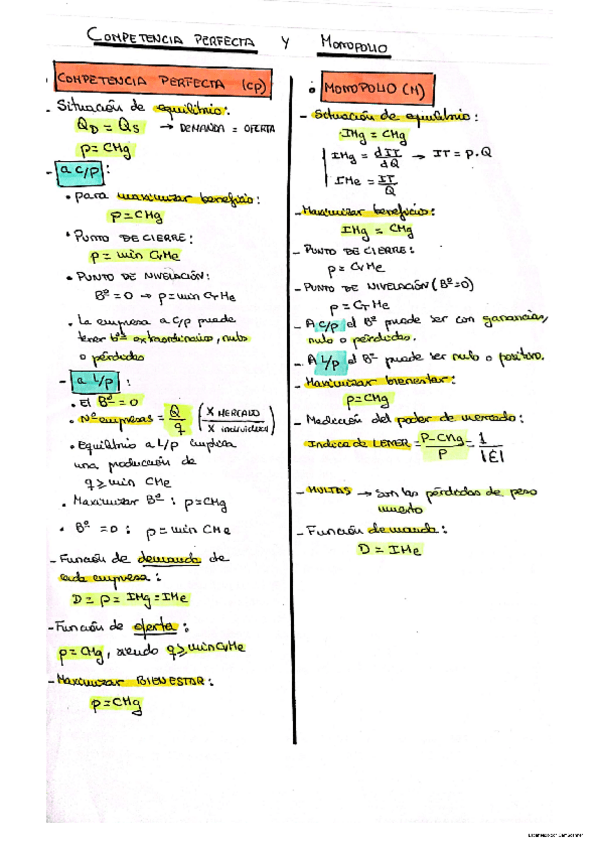 COMPETENCIA PERFECTA Y MONOPOLIO
COMPETENCIA PERFECTA (CP)
- Situación de equilibrio:
QD = QS → DEMANDA = OFERTA
p = CMg
- a c/p:
• para maximizar beneficio:
p = CMg
• PUNTO DE CIERRE:
p = min CvMe
• PUNTO DE NIVELACIÓN:
Bº = 0 → p = min CTMe
• La empresa a c/p puede
tener bº extraordinarios, nulo
o pérdidas
- a L/p:
• El Bº = 0
• Nº empresas = Q/q (X MERCADO / X individual)
• Equilibrio a L/p implica
una producción de
q ≥ min CMe
• Maximizar Bº: p = CMg
• Bº = 0: p = min CMe
- Función de demanda de
cada empresa:
D = p = IMg = IMe
- Función de oferta:
p = CMg, siendo q ≥ min CvMe
- Maximizar BIENESTAR:
p = CMg
MONOPOLIO (M)
- Situación de equilibrio:
IMg = CMg
IMg = dIT/dQ → IT = p.Q
IMe = IT/Q
- Maximizar beneficio:
IMg = CMg
- PUNTO DE CIERRE:
p = CvMe
- PUNTO DE NIVELACIÓN (Bº=0)
p = CTMe
- A c/p el Bº puede ser con ganancias,
nulo o pérdidas.
- A L/p el Bº puede ser nulo o positivo.
- Maximizar bienestar:
p = CMg
- Medición del poder de mercado:
Indice de LERNER = P-CMg/P = 1/|E|
- MULTAS → Son las pérdidas de peso
muerto
- Función demanda:
D = IMe